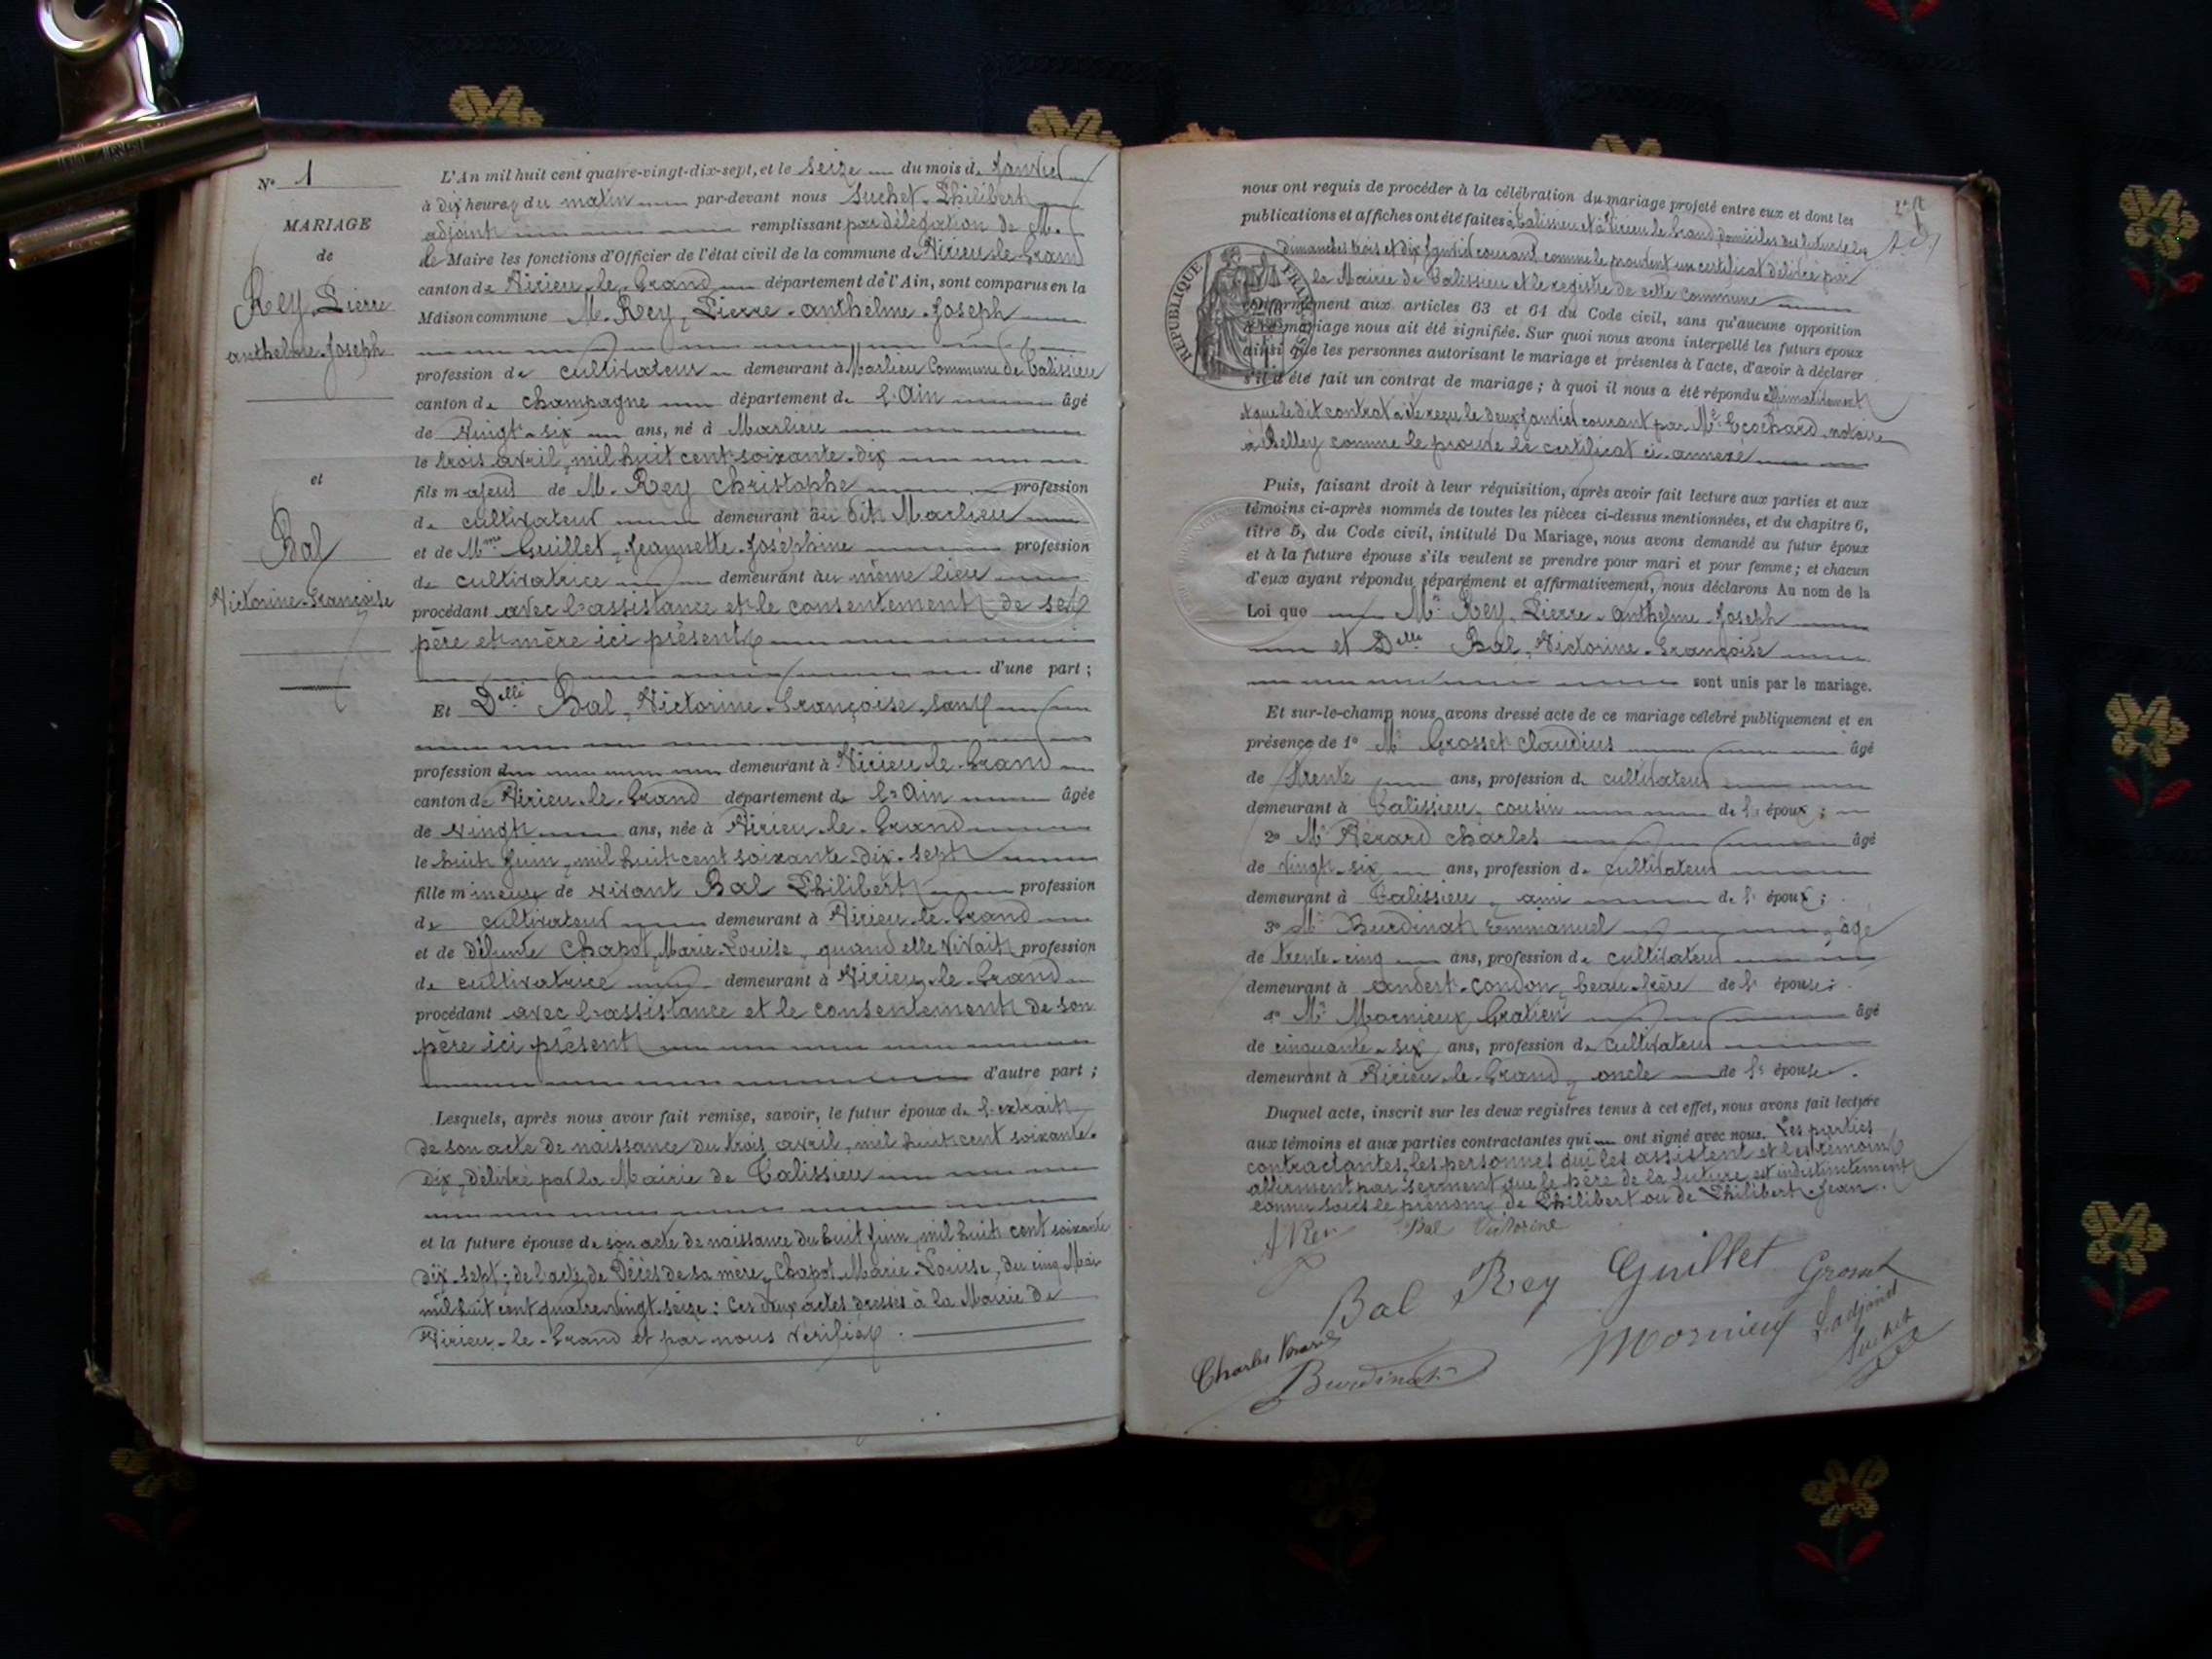 N° 1
MARIAGE
de
Rey, Pierre
anthelme-Joseph
et
Bal
Victorine-Françoise
L'An mil huit cent quatre-vingt-dix-sept, et le seize du mois de Janvier
à dix heures du matin par-devant nous Suchet-Philibert
adjoint remplissant par délégation de M.
le Maire les fonctions d'Officier de l'état civil de la commune de Virieu-le-Grand
canton de Virieu-le-Grand département de l'Ain, sont comparus en la
Maison commune M. Rey, Pierre-anthelme-Joseph
profession de cultivateur demeurant à Marlieu Commune de Talissieu
canton de Champagne département de l'Ain âgé
de vingt-six ans, né à Marlieu
le trois avril, mil huit cent soixante-dix
fils majeur de M. Rey Christophe profession
de cultivateur demeurant au dit Marlieu
et de Mme Guillet, Jeannette-Joséphine profession
de cultivatrice demeurant au même lieu
procédant avec l'assistance et le consentement de ses
père et mère ici présents
d'une part ;
Et Delle Bal, Victorine-Françoise, sans
profession demeurant à Virieu-le-Grand
canton de Virieu-le-Grand département de l'Ain âgée
de vingt ans, née à Virieu-le-Grand
le huit Juin, mil huit cent soixante-dix-sept
fille mineure de vivant Bal Philibert profession
de cultivateur demeurant à Virieu-le-Grand
et de défunte Chapot, Marie-Louise, quand elle vivait profession
de cultivatrice demeurant à Virieu-le-Grand
procédant avec l'assistance et le consentement de son
père ici présent
d'autre part ;
Lesquels, après nous avoir fait remise, savoir, le futur époux de l'extrait
de son acte de naissance du trois avril, mil huit cent soixante-
dix, délivré par la Mairie de Talissieu
et la future épouse de son acte de naissance du huit Juin, mil huit cent soixante
dix-sept; de l'acte de Décès de sa mère, Chapot Marie-Louise, du cinq Mai
mil huit cent quatre-vingt-seize : Ces deux actes dressés à la Mairie de
Virieu-le-Grand et par nous vérifiés.
nous ont requis de procéder à la célébration du mariage projeté entre eux et dont les
publications et affiches ont été faites à Talissieu et à Virieu-le-Grand domiciles des futurs les
dimanches trois et dix Janvier courant comme le prouvent un certificat délivré par
la Mairie de Talissieu et le registre de cette commune
RÉPUBLIQUE FRANÇAISE
conformément aux articles 63 et 64 du Code civil, sans qu'aucune opposition
à ce mariage nous ait été signifiée. Sur quoi nous avons interpellé les futurs époux
ainsi que les personnes autorisant le mariage et présentes à l'acte, d'avoir à déclarer
s'il a été fait un contrat de mariage ; à quoi il nous a été répondu affirmativement
et que le dit contrat a été reçu le deux Janvier courant par Me Ecochard, notaire
à Belley comme le prouve le certificat ci-annexé
Puis, faisant droit à leur réquisition, après avoir fait lecture aux parties et aux
témoins ci-après nommés de toutes les pièces ci-dessus mentionnées, et du chapitre 6,
titre 5, du Code civil, intitulé Du Mariage, nous avons demandé au futur époux
et à la future épouse s'ils veulent se prendre pour mari et pour femme ; et chacun
d'eux ayant répondu séparément et affirmativement, nous déclarons Au nom de la
Loi que Mr Rey, Pierre-Anthelme-Joseph
et Delle Bal, Victorine-Françoise
sont unis par le mariage.
Et sur-le-champ nous avons dressé acte de ce mariage célébré publiquement et en
présence de 1° Mr Grosset Claudius âgé
de trente ans, profession de cultivateur
demeurant à Talissieu, cousin de l' époux ;
2° Mr Vérard Charles âgé
de vingt-six ans, profession de cultivateur
demeurant à Talissieu, ami de l' époux ;
3° Mr Burdinat Emmanuel âgé
de trente-cinq ans, profession de cultivateur
demeurant à andert-condon, beau-frère de l' épouse ;
4° Mr Mornieux Gratien âgé
de cinquante-six ans, profession de cultivateur
demeurant à Virieu-le-Grand, oncle de l' épouse.
Duquel acte, inscrit sur les deux registres tenus à cet effet, nous avons fait lecture
aux témoins et aux parties contractantes qui ont signé avec nous. Les parties
contractantes, les personnes qui les assistent et les témoins
affirment par serment que le père de la future est indistinctement
connu sous le prénom de Philibert ou de Philibert-Jean.
Bal Victorine
Bal Rey Guillet Grosset
Charles Verard Burdinat Mornieux L'adjoint
Suchet